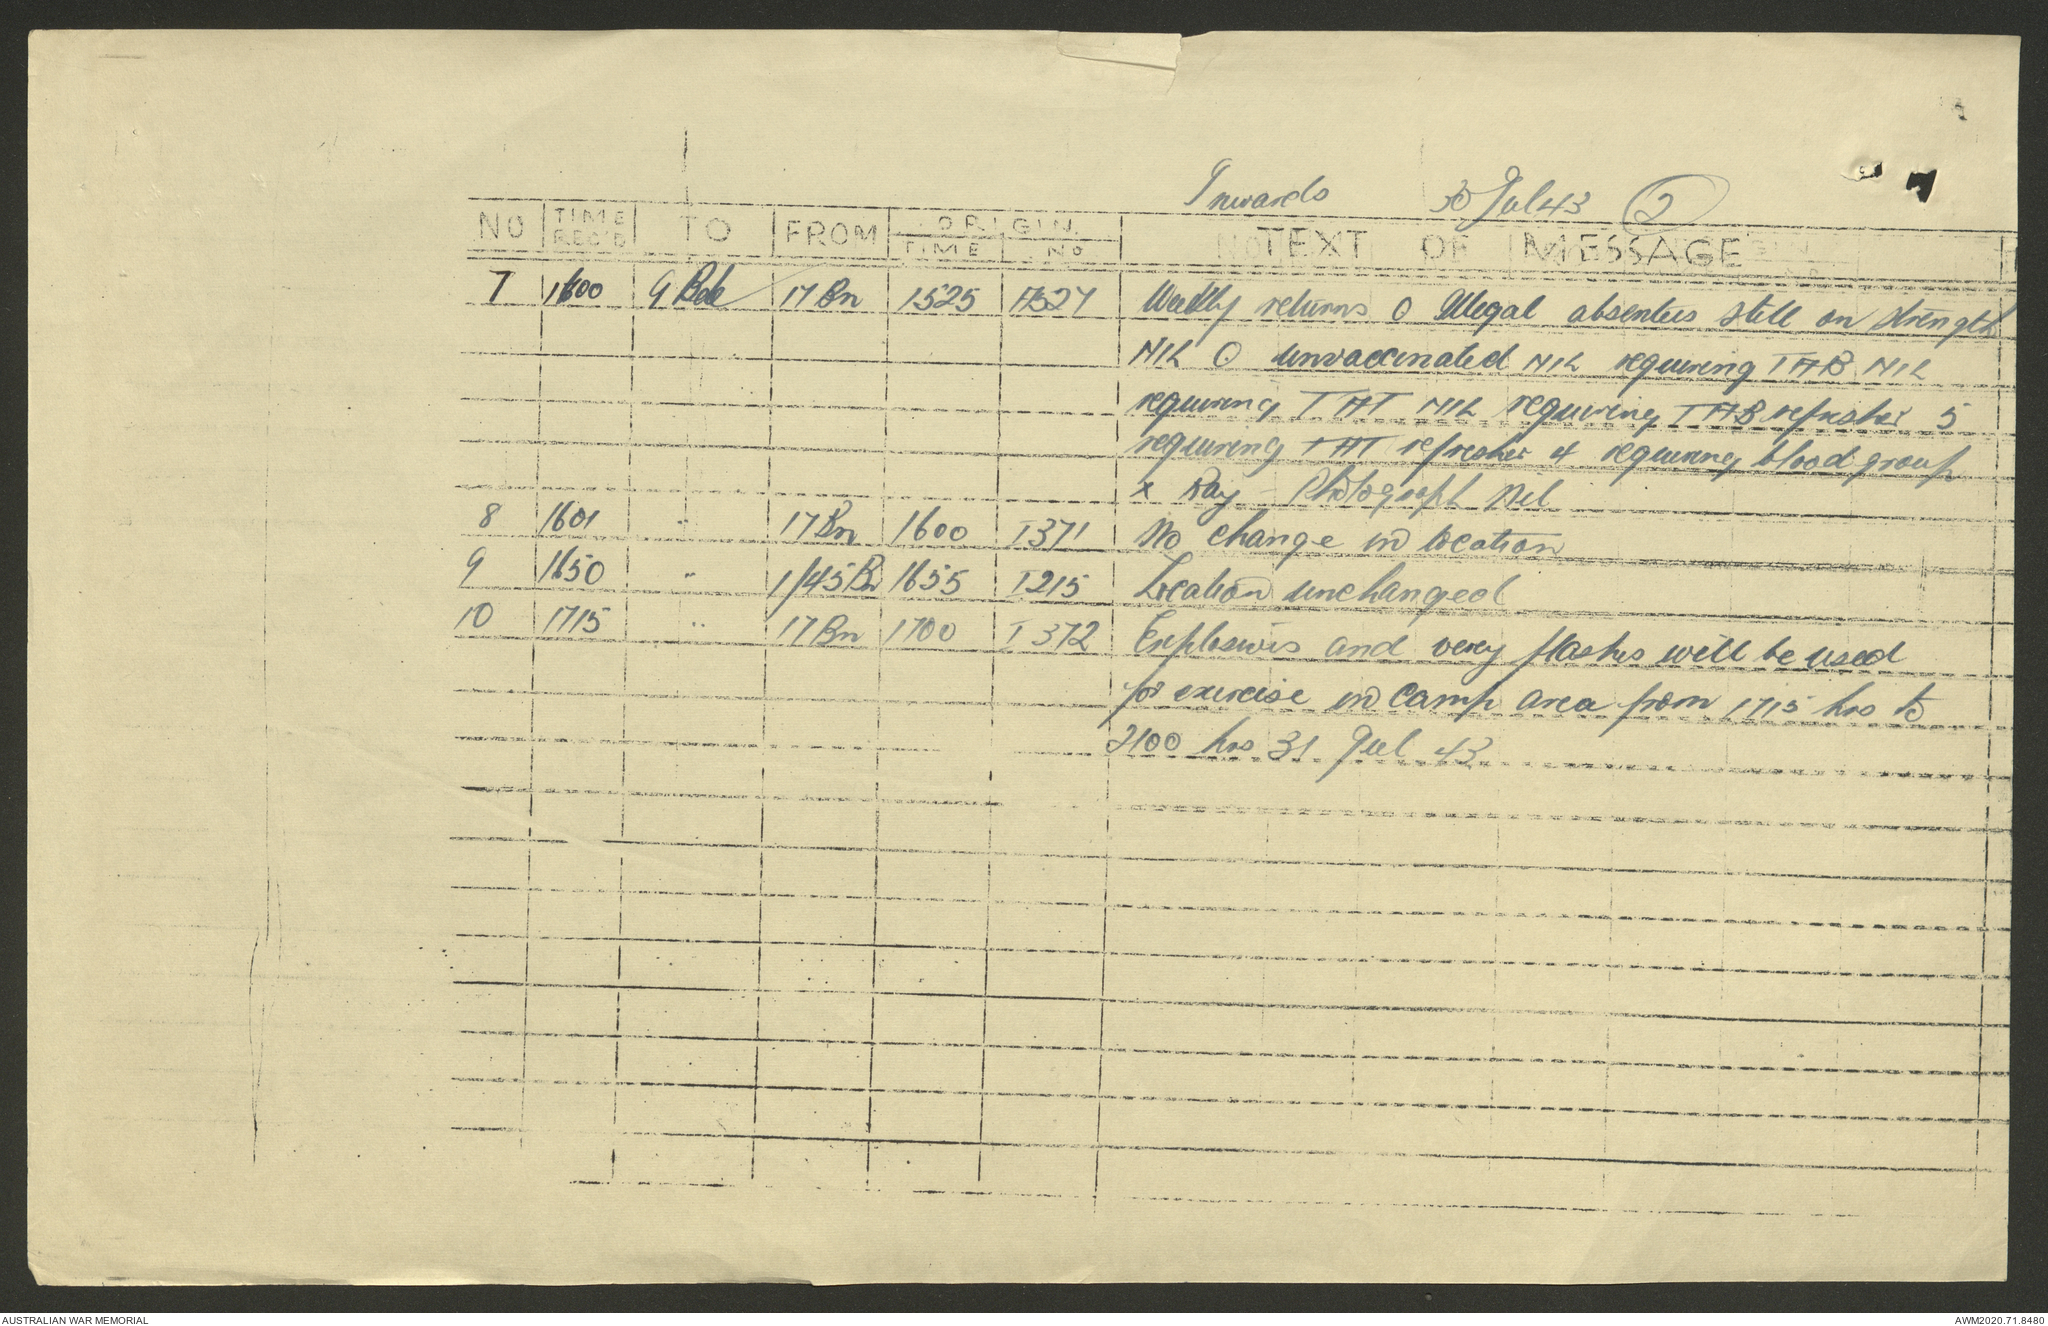 Inwards 30 Jul 43 2
NO TIME REC'D TO FROM ORIGIN TIME NO TEXT OF MESSAGE
7 1600 9 Bde 17 Bn 1525 A527 Weekly returns O Illegal absentees still on strength
NIL O unvaccinated NIL requiring TAB NIL
requiring TAT NIL requiring TAB refresher 5
requiring TAT refresher 4 requiring blood group
X Ray - Photograph Nil
8 1601 " 17 Bn 1600 I371 No change in location
9 1650 " 1/45 Bn 1655 I215 Location unchanged
10 1715 " 17 Bn 1700 I372 Explosives and very flashes will be used
for exercise in camp area from 1715 hrs to
2100 hrs 31 Jul 43
AUSTRALIAN WAR MEMORIAL
AWM2020.71.8480